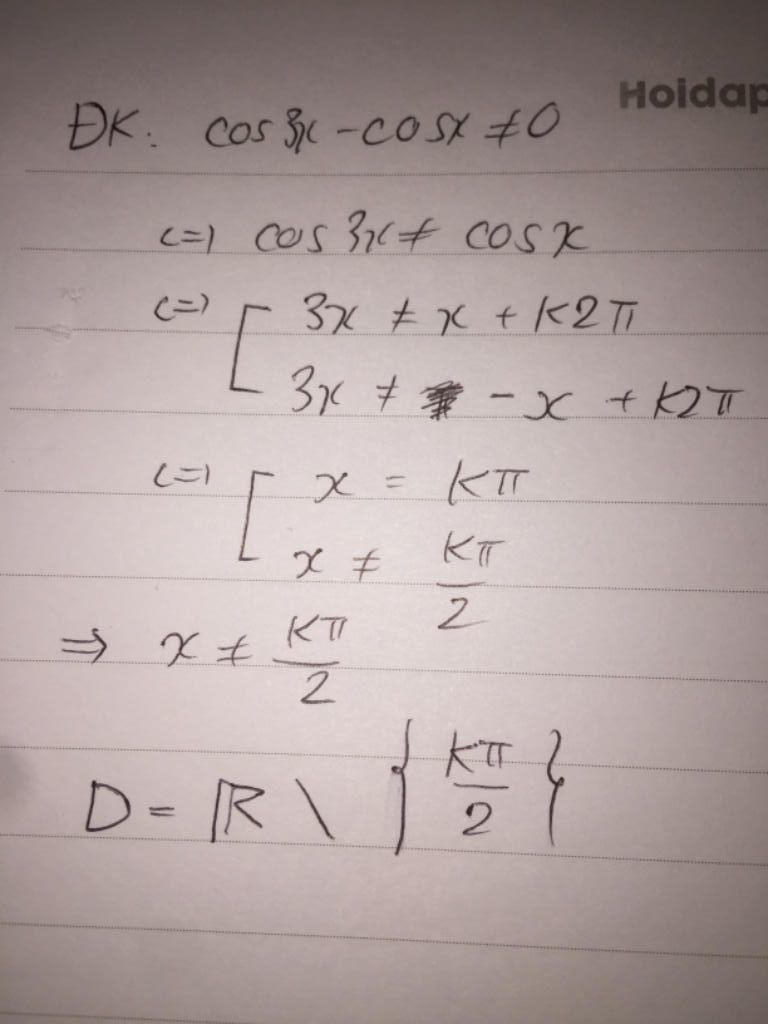 Hoidap
ĐK: cos3x - cosx ≠ 0
<=> cos3x ≠ cosx
<=> [ 3x ≠ x + k2π
3x ≠ -x + k2π
<=> [ x = kπ
x ≠ kπ/2
=> x ≠ kπ/2
D = ℝ \ { kπ/2 }